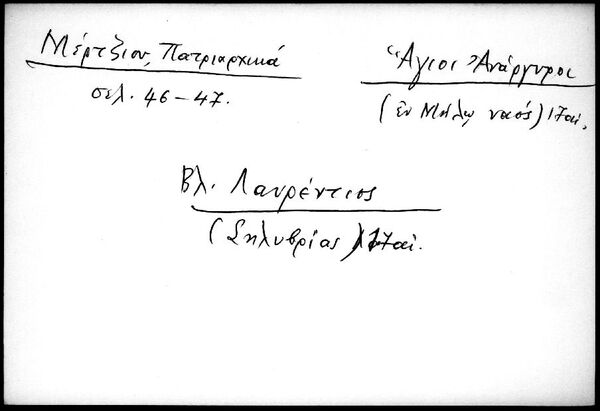 Μέρτζιου, Πατριαρχικά
σελ. 46-47.
Ἅγιοι Ἀνάργυροι
(ἐν Μήλῳ ναός) 17 αἰ.
Βλ. Λαυρέντιος
(Σηλυβρίας) 17 αἰ.